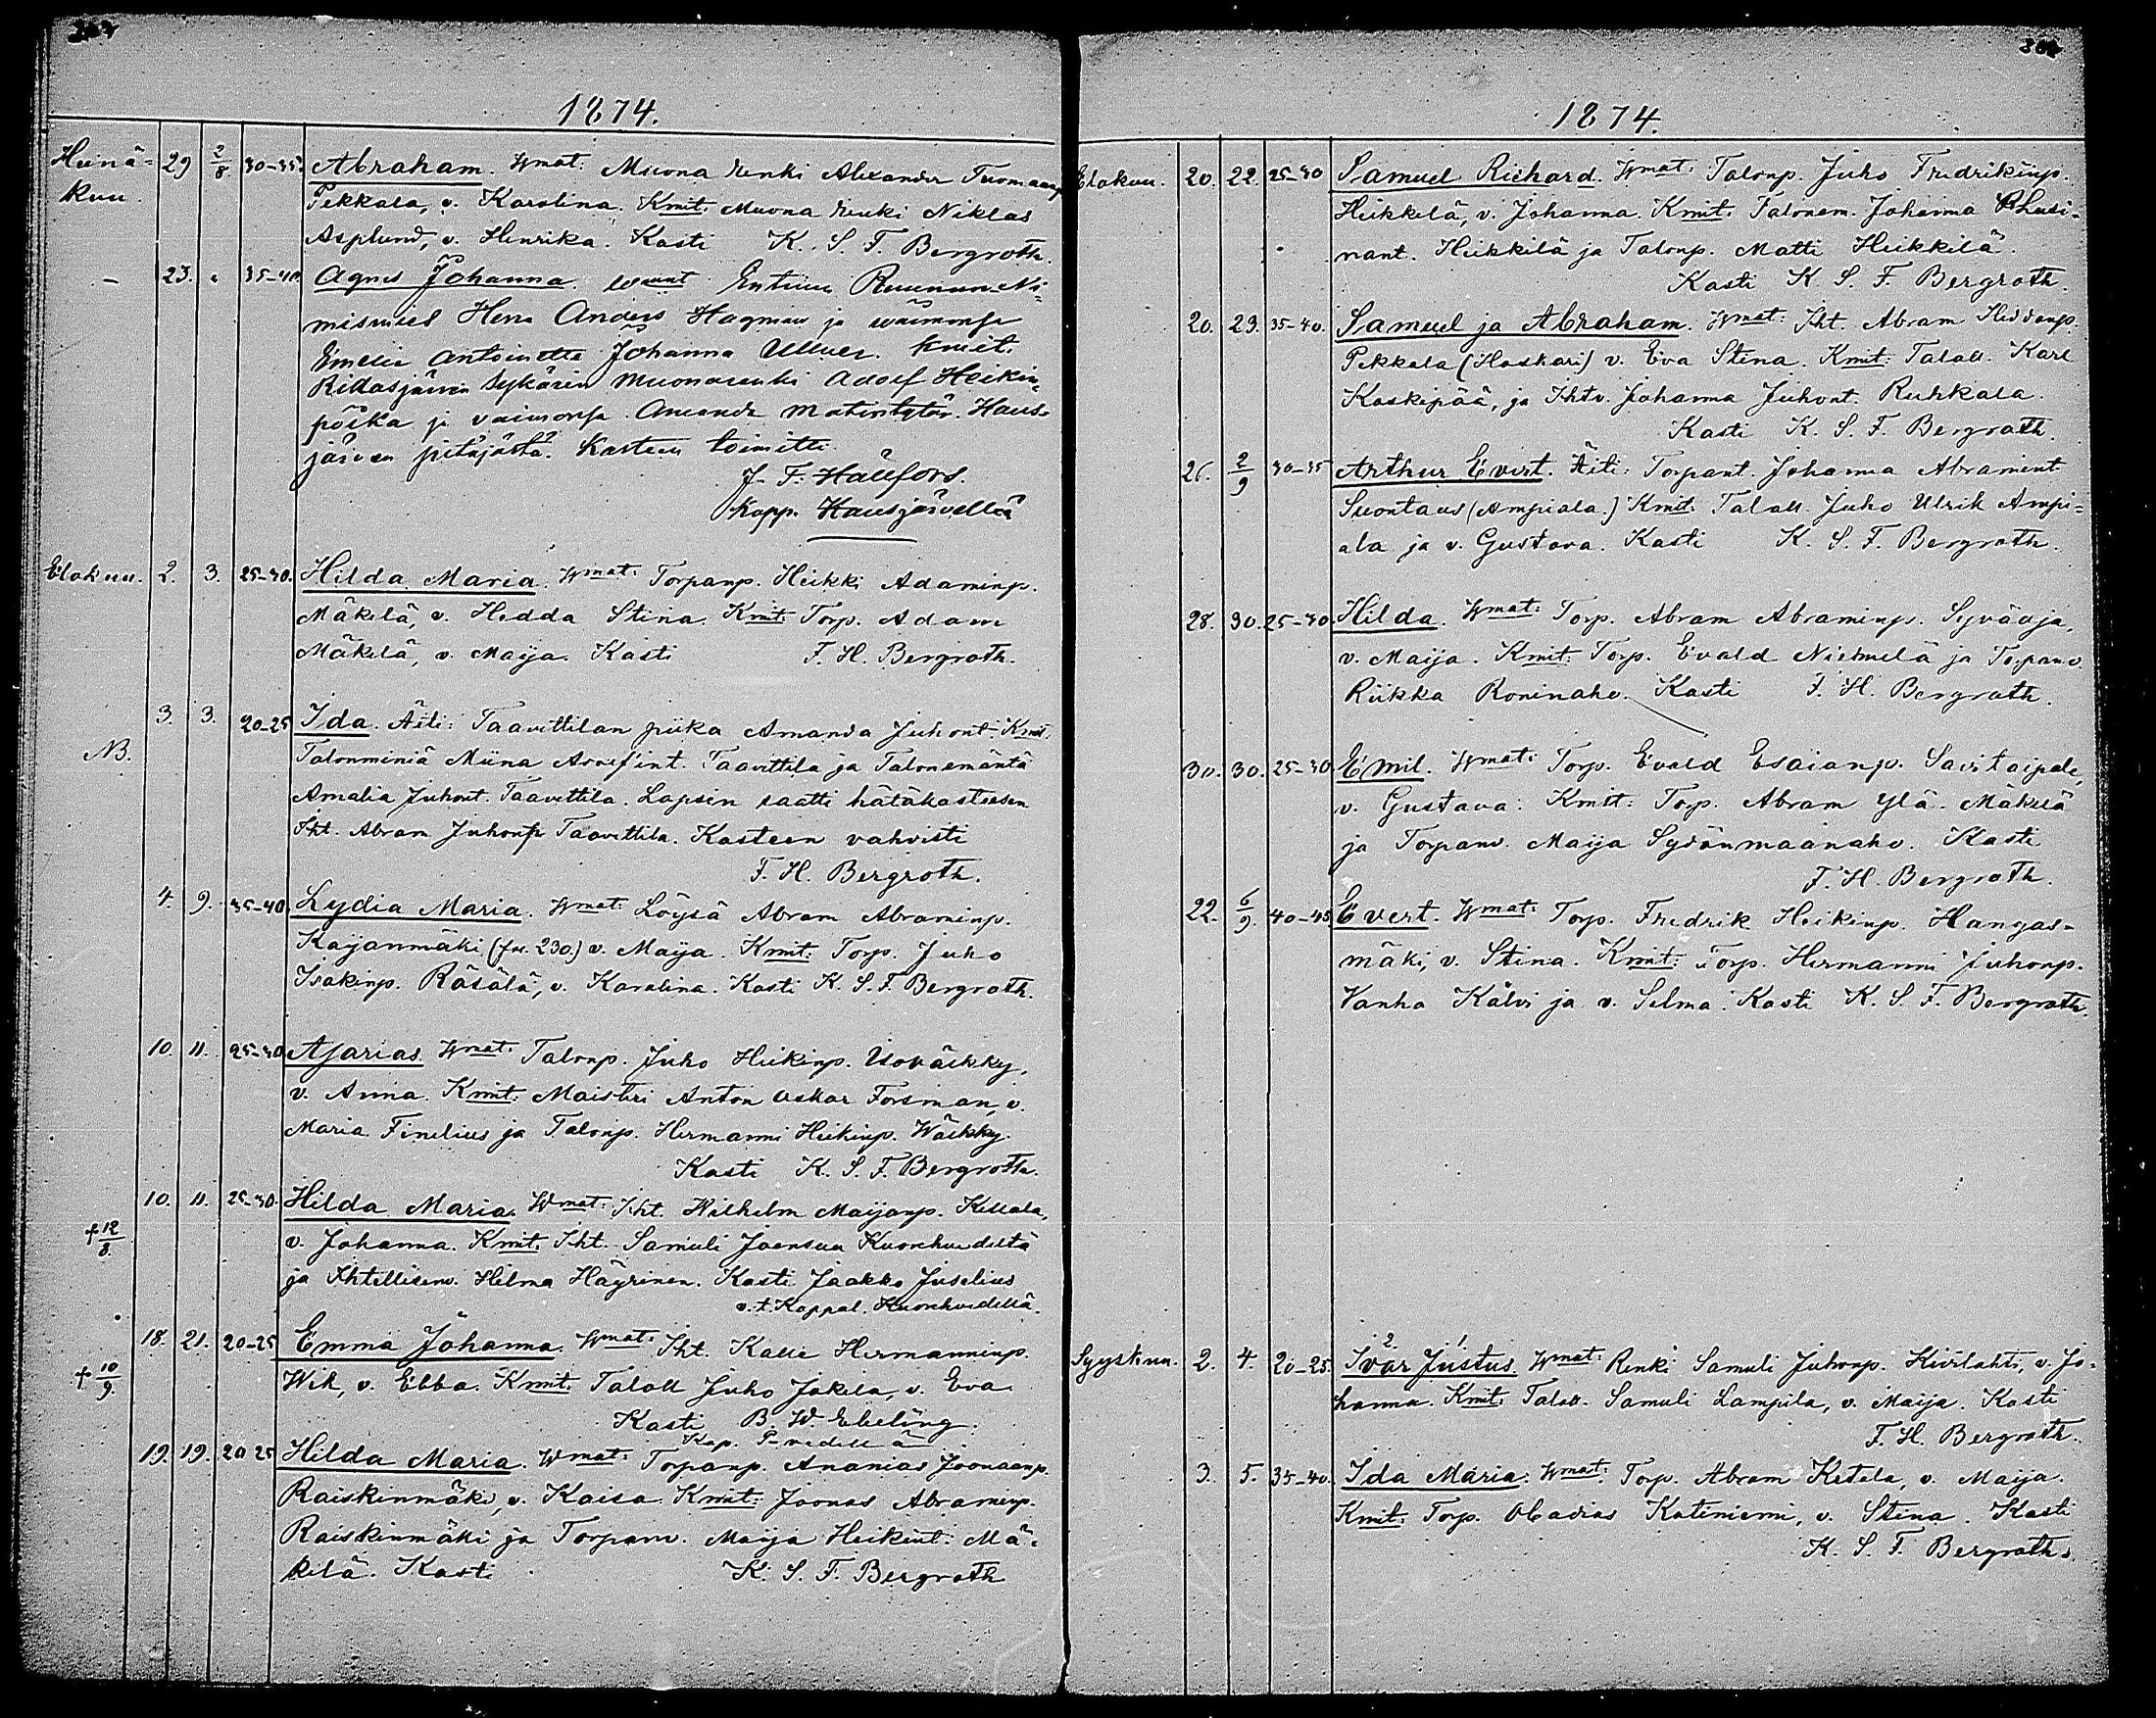 1874.
Heinä= 29 2/8 30-35. Abraham. Wmat: Muona renki Alexander Tuomaanp
kuu. Pekkala, v. Karolina. Kmit: Muona renki Niklas
Asplund, v. Henrika. Kasti K. S. F. Bergroth.
– 23. 35-40. Agnes Johanna. Entinen Ruunun Ni=
mismies Herra Anders Hagman ja waimonsa
Emelie Antoinette Johanna Kmit.
Ridasjärven Muonarenki Adolf Heikin
poika ja vaimonsa Amanda Matintytär Haus=
järven pitäjästä. Kasteen toimitti
J. F. Hällfors.
Kapp. Hausjärvellä
Elokuu. 2. 3. 25-30. Hilda Maria. Wmat: Torpanp. Heikki Adaminp.
Mäkelä, v. Hedda Stina. Kmit: Torp. Adam
Mäkelä, v. Maija. Kasti F. H. Bergroth.
3. 3. 20-25 Ida. Äiti: Taavittilan piika Amanda Juhont. Kmit:
NB. Talonminiä Miina Taavittila ja Talonemäntä
Amalia Juhont. Taavittila. Lapsen saatti hätäkasteesen
Iht. Abram Juhonp Taavittila. Kasteen vahvisti
F. H. Bergroth.
4. 9. 35-40. Lydia Maria. Wmat: Löysä Abram Abraminp.
Kaijanmäki (fre. 230.) v. Maija. Kmit: Torp. Juho
Isakinp. Räsälä, v. Karolina. Kasti K. S. F. Bergroth.
10. 11. 25-30 Asarias Wmat: Talonp. Juho Heikinp. Isoväikky,
v. Anna. Kmit: Maisteri Anton Oskar Forsman, v.
Maria Finelius ja Talonp. Hermanni Heikinp. Wäikky.
Kasti K. S. F. Bergroth.
10. 11. 25-30. Hilda Maria. Wmat: Iht. Wilhelm Maijanp. Kellala,
+12/8. v. Johanna. Kmit. Iht. Samuli Joensuu Kuorehvedeltä
ja Ihtellisenv. Hilma Häyrinen. Kasti Jaakko Juselius
v.t. Kappal. Kuorehvedellä.
18. 21. 20-25 Emma Johanna. Wmat: Iht. Kalle Hermanninp.
+10/9. Wik, v. Ebba. Kmit: Taloll Juho Jokela, v. Eva
Kasti B. W. Ebeling.
Kap. P-vedellä
19. 19. 20 25 Hilda Maria. Wmat: Torpanp. Ananias Joonaanp.
Raiskinmäki, v. Kaisa. Kmit: Joonas Abraminp.
Raiskinmäki ja Torpanv. Maija Heikint. Mä=
kelä. Kasti K. S. F. Bergroth
1874.
Elokuu. 20. 22. 25-30 Samuel Richard. Wmat: Talonp. Juho Fredrikinp.
Heikkilä, v. Johanna. Kmit: Talonem. Johanna
nant. Heikkilä ja Talonp. Matti Heikkilä.
Kasti K. S. F. Bergroth.
20. 23. 35-40. Samuel ja Abraham. Wmat: Iht. Abram
Pekkala (Haskari) v. Eva Stina. Kmit: Taloll. Karl
Koskipää, ja Ihtv. Johanna Juhont. Ruhkala.
Kasti K. S. F. Bergroth.
26. 2/9 30-35 Arthur Evert. Äiti: Torpant. Johanna Abramint
Suontaus (Ampiala.) Kmit. Taloll. Juho Ulrik Ampi=
ala ja v. Gustava. Kasti K. S. F. Bergroth.
28. 30. 25-30. Hilda. Wmat: Torp. Abram Abraminp. Syväoja,
v. Maija. Kmit: Torp. Evald Niemelä ja Torpanv.
Riikka Roninaho. Kasti F. H. Bergroth.
30. 30. 25-30 Emil. Wmat: Torp. Evald Esaianp. Savitaipale,
v. Gustava. Kmit: Torp. Abram Ylä-Mäkelä
ja Torpanv. Maija Sydänmaanaho. Kasti
F. H. Bergroth.
22. 6/9. 40-45 Evert. Wmat: Torp. Fredrik Heikinp. Hangas=
mäki, v. Stina. Kmit: Torp. Hermanni Juhonp.
Vanha Kälvi ja v. Selma. Kasti K. S. F. Bergroth.
2 1
Syyskuu. 2. 4. 20-25. Ivar Justus. Wmat: Renki Samuli Juhonp. Kivilahti, v. Jo=
hanna. Kmit: Taloll. Samuli Lampila, v. Maija. Kasti
F. H. Bergroth.
3. 5. 35-40. Ida Maria. Wmat: Torp. Abram Ketela, v. Maija.
Kmit: Torp. Obadias Katiniemi, v. Stina. Kasti
K. S. F. Bergroth.